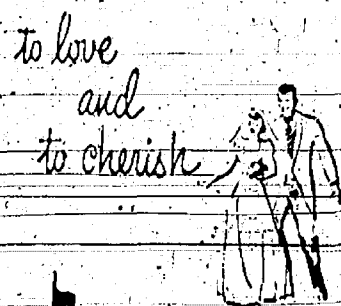 to love
and
to cherish